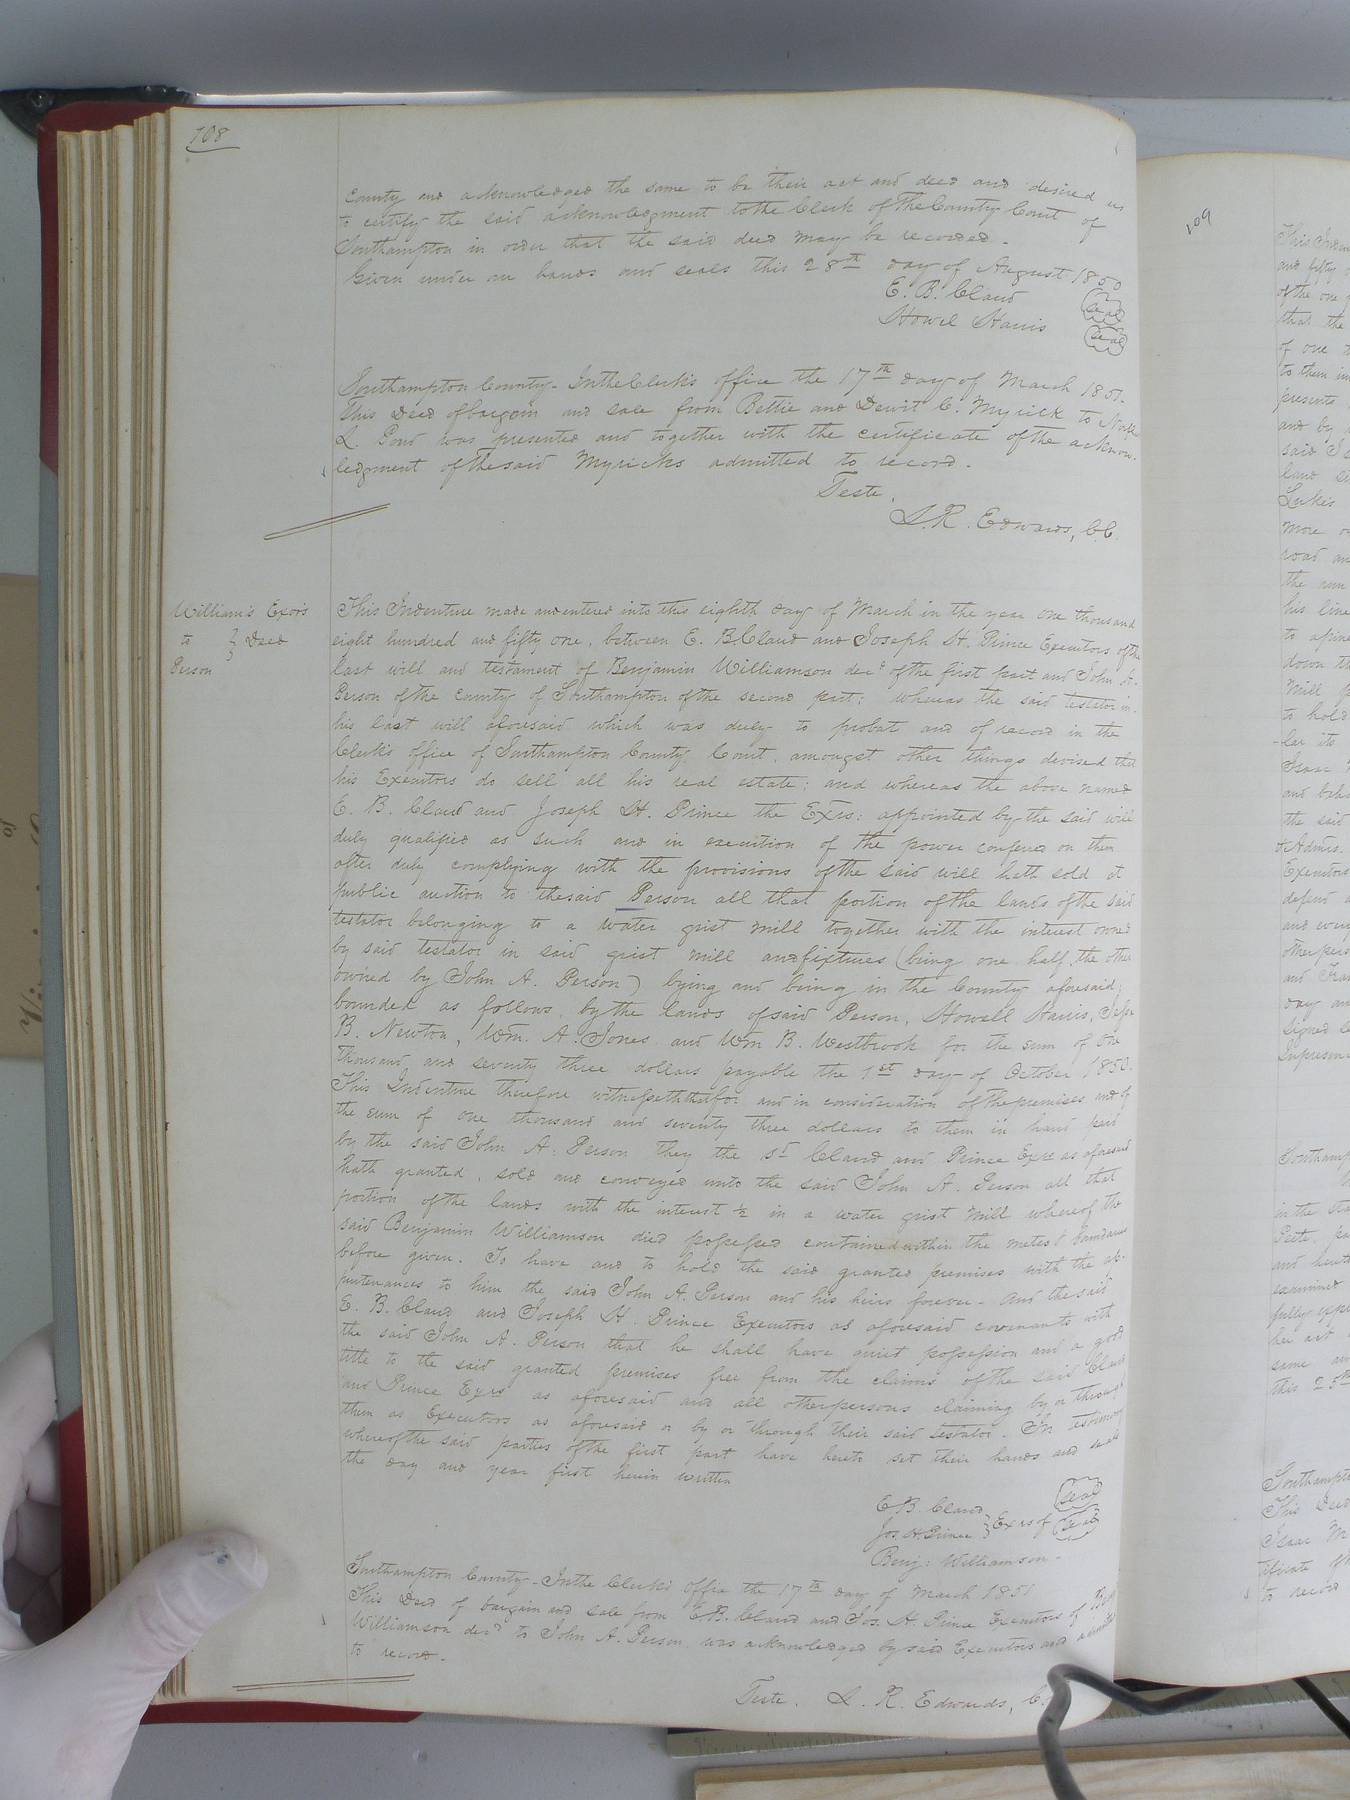 108
County and acknowledged the same to be their act and deed and desired us
to certify the said acknowledgment to the Clerk of the County Court of
Southampton in order that the said deed may be recorded.
Given under our hands and seals this 28th day of August 1850
E. B. Claud seal
Howel Harris seal
Southampton County - In the Clerk's office the 17th day of March 1851.
This Deed of bargain and sale from Bettie and Dewit C. Myrick to
L. Pond was presented and together with the certificate of the acknow-
ledgment of the said Myricks admitted to record.
Teste.
L. R. Edwards, C.C.
William's Exors
to } Deed
Person
This Indenture made and entered into this eighth day of March in the year one thousand
eight hundred and fifty one, between E. B. Claud and Joseph H. Prince Executors of the
last will and testament of Benjamin Williamson decd of the first part and John A.
Person of the County of Southampton of the second part; whereas the said testator in
his last will aforesaid which was duly to probat and of record in the
Clerk's office of Southampton County Court, amongst other things devised that
his Executors do sell all his real estate; and whereas the above named
E. B. Claud and Joseph H. Prince the Exrs: appointed by the said will
duly qualified as such and in execution of the power confered on them
after duly complying with the provisions of the said will hath sold at
public auction to the said Person all that portion of the lands of the said
testator belonging to a water grist mill together with the interest owned
by said testator in said grist mill and fixtures (being one half, the other
owned by John A. Person) lying and being in the County aforesaid;
bounded as follows, by the lands of said Person, Howell Harris, Jesse
B. Newton, Wm. A. Jones and Wm B. Westbrook for the sum of one
thousand and seventy three dollars payable the 1st day of October 1850.
This Indenture therefore witnesseth that for and in consideration of the premises and of
the sum of one thousand and seventy three dollars to them in hand paid
by the said John A. Person they the sd Claud and Prince Exrs as aforesaid
hath granted, sold and conveyed unto the said John A. Person all that
portion of the lands with the interest ½ in a water grist mill whereof the
said Benjamin Williamson died possessed contained within the metes & boundaries
before given. To have and to hold the said granted premises with the ap-
purtenances to him the said John A. Person and his heirs forever - And the said
E. B. Claud and Joseph H. Prince Executors as aforesaid covenants with
the said John A. Person that he shall have quiet possession and a good
title to the said granted premises free from the claims of the said Claud
and Prince Exrs as aforesaid and all other persons claiming by or through
them as Executors as aforesaid or by or through their said testator. In testimony
whereof the said parties of the first part have hereto set their hands and seals
the day and year first herein written
E. B. Claud seal
Jos. H. Prince } Exrs of seal
Benj: Williamson -
Southampton County - In the Clerk's office the 17th day of March 1851
This Deed of bargain and sale from E. B. Claud and Jos. H. Prince Executors of
Williamson decd to John A. Person was acknowledged by said Executors and admitted
to record.
Teste. L. R. Edwards, C.
109
This Inden
and fifty
of the one
that the
of one
to them in
presents
and by
said
land
more
road an
the
his line
to
down th
Mill
to hold
-lar its
Isaac
and beh
the said
& Admrs.
Executors
defend
and ever
other pers
and
day an
Signed
In presen
Southamp
in the Sta
Pete
and heret
examined
fully exp
her act
same
this 25th
Southampto
This Deed
Isaac M
tificate
to record